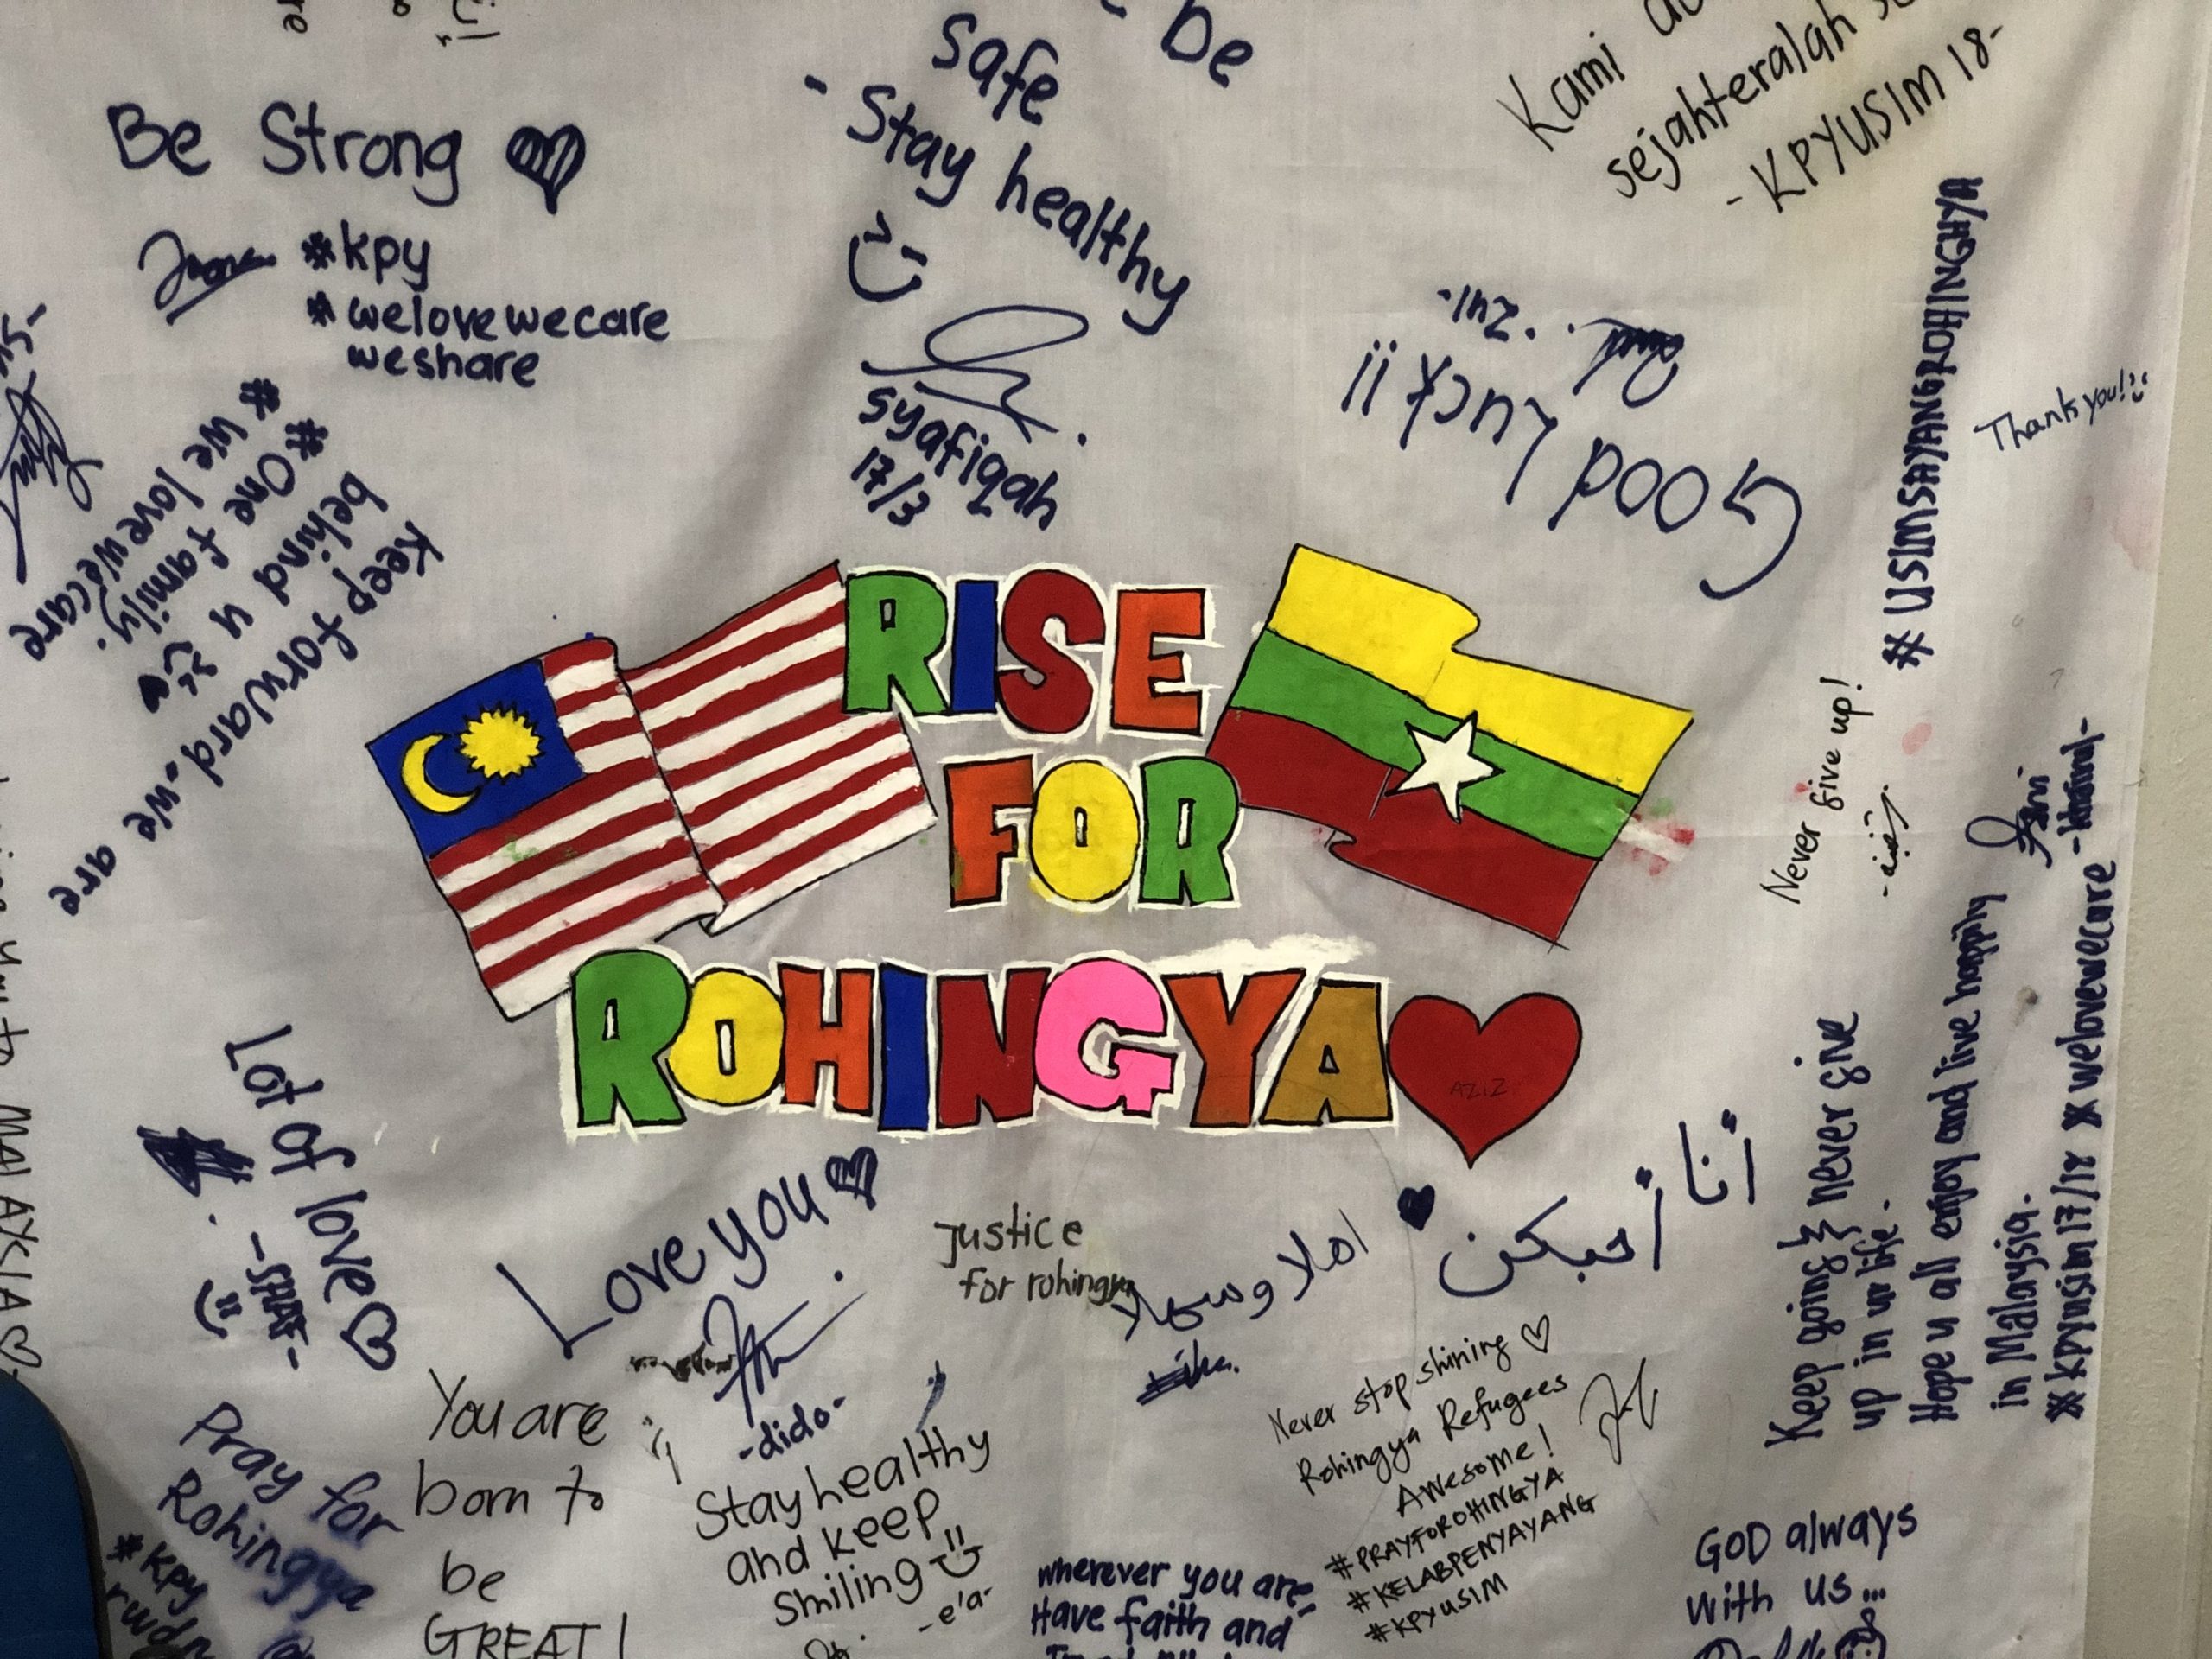 be
safe
- Stay healthy
syafiqah
17/3
Be Strong
#kpy
#welovewecare
weshare
Kami
sejahteralah
- KPYUSIM 18-
Good Luck ii
-Zul-
#USIMSAYANGROHINGHYA
Thank you!
Keep forward - we are
behind u
#One family.
#We love we care
RISE
FOR
ROHINGYA
AZIZ
Never give up!
Keep going & never give
up in ur life.
Hope u all enjoy and live happily
in Malaysia.
#kpyusim17/18 #welovewecare
to MALAYSIA
Lot of love
Love you
-dido-
Justice
for rohingya
اهلا وسهلا
أنا أحبكن
Never stop shining
Rohingya Refugees
Awesome!
#PRAYFOROHINGYA
#KELABPENYAYANG
#KPYUSIM
You are
born to
be
GREAT!
Pray for
Rohingya
#kpy
Stay healthy
and keep
smiling
-e'a-
wherever you are,
Have faith and
GOD always
with us...